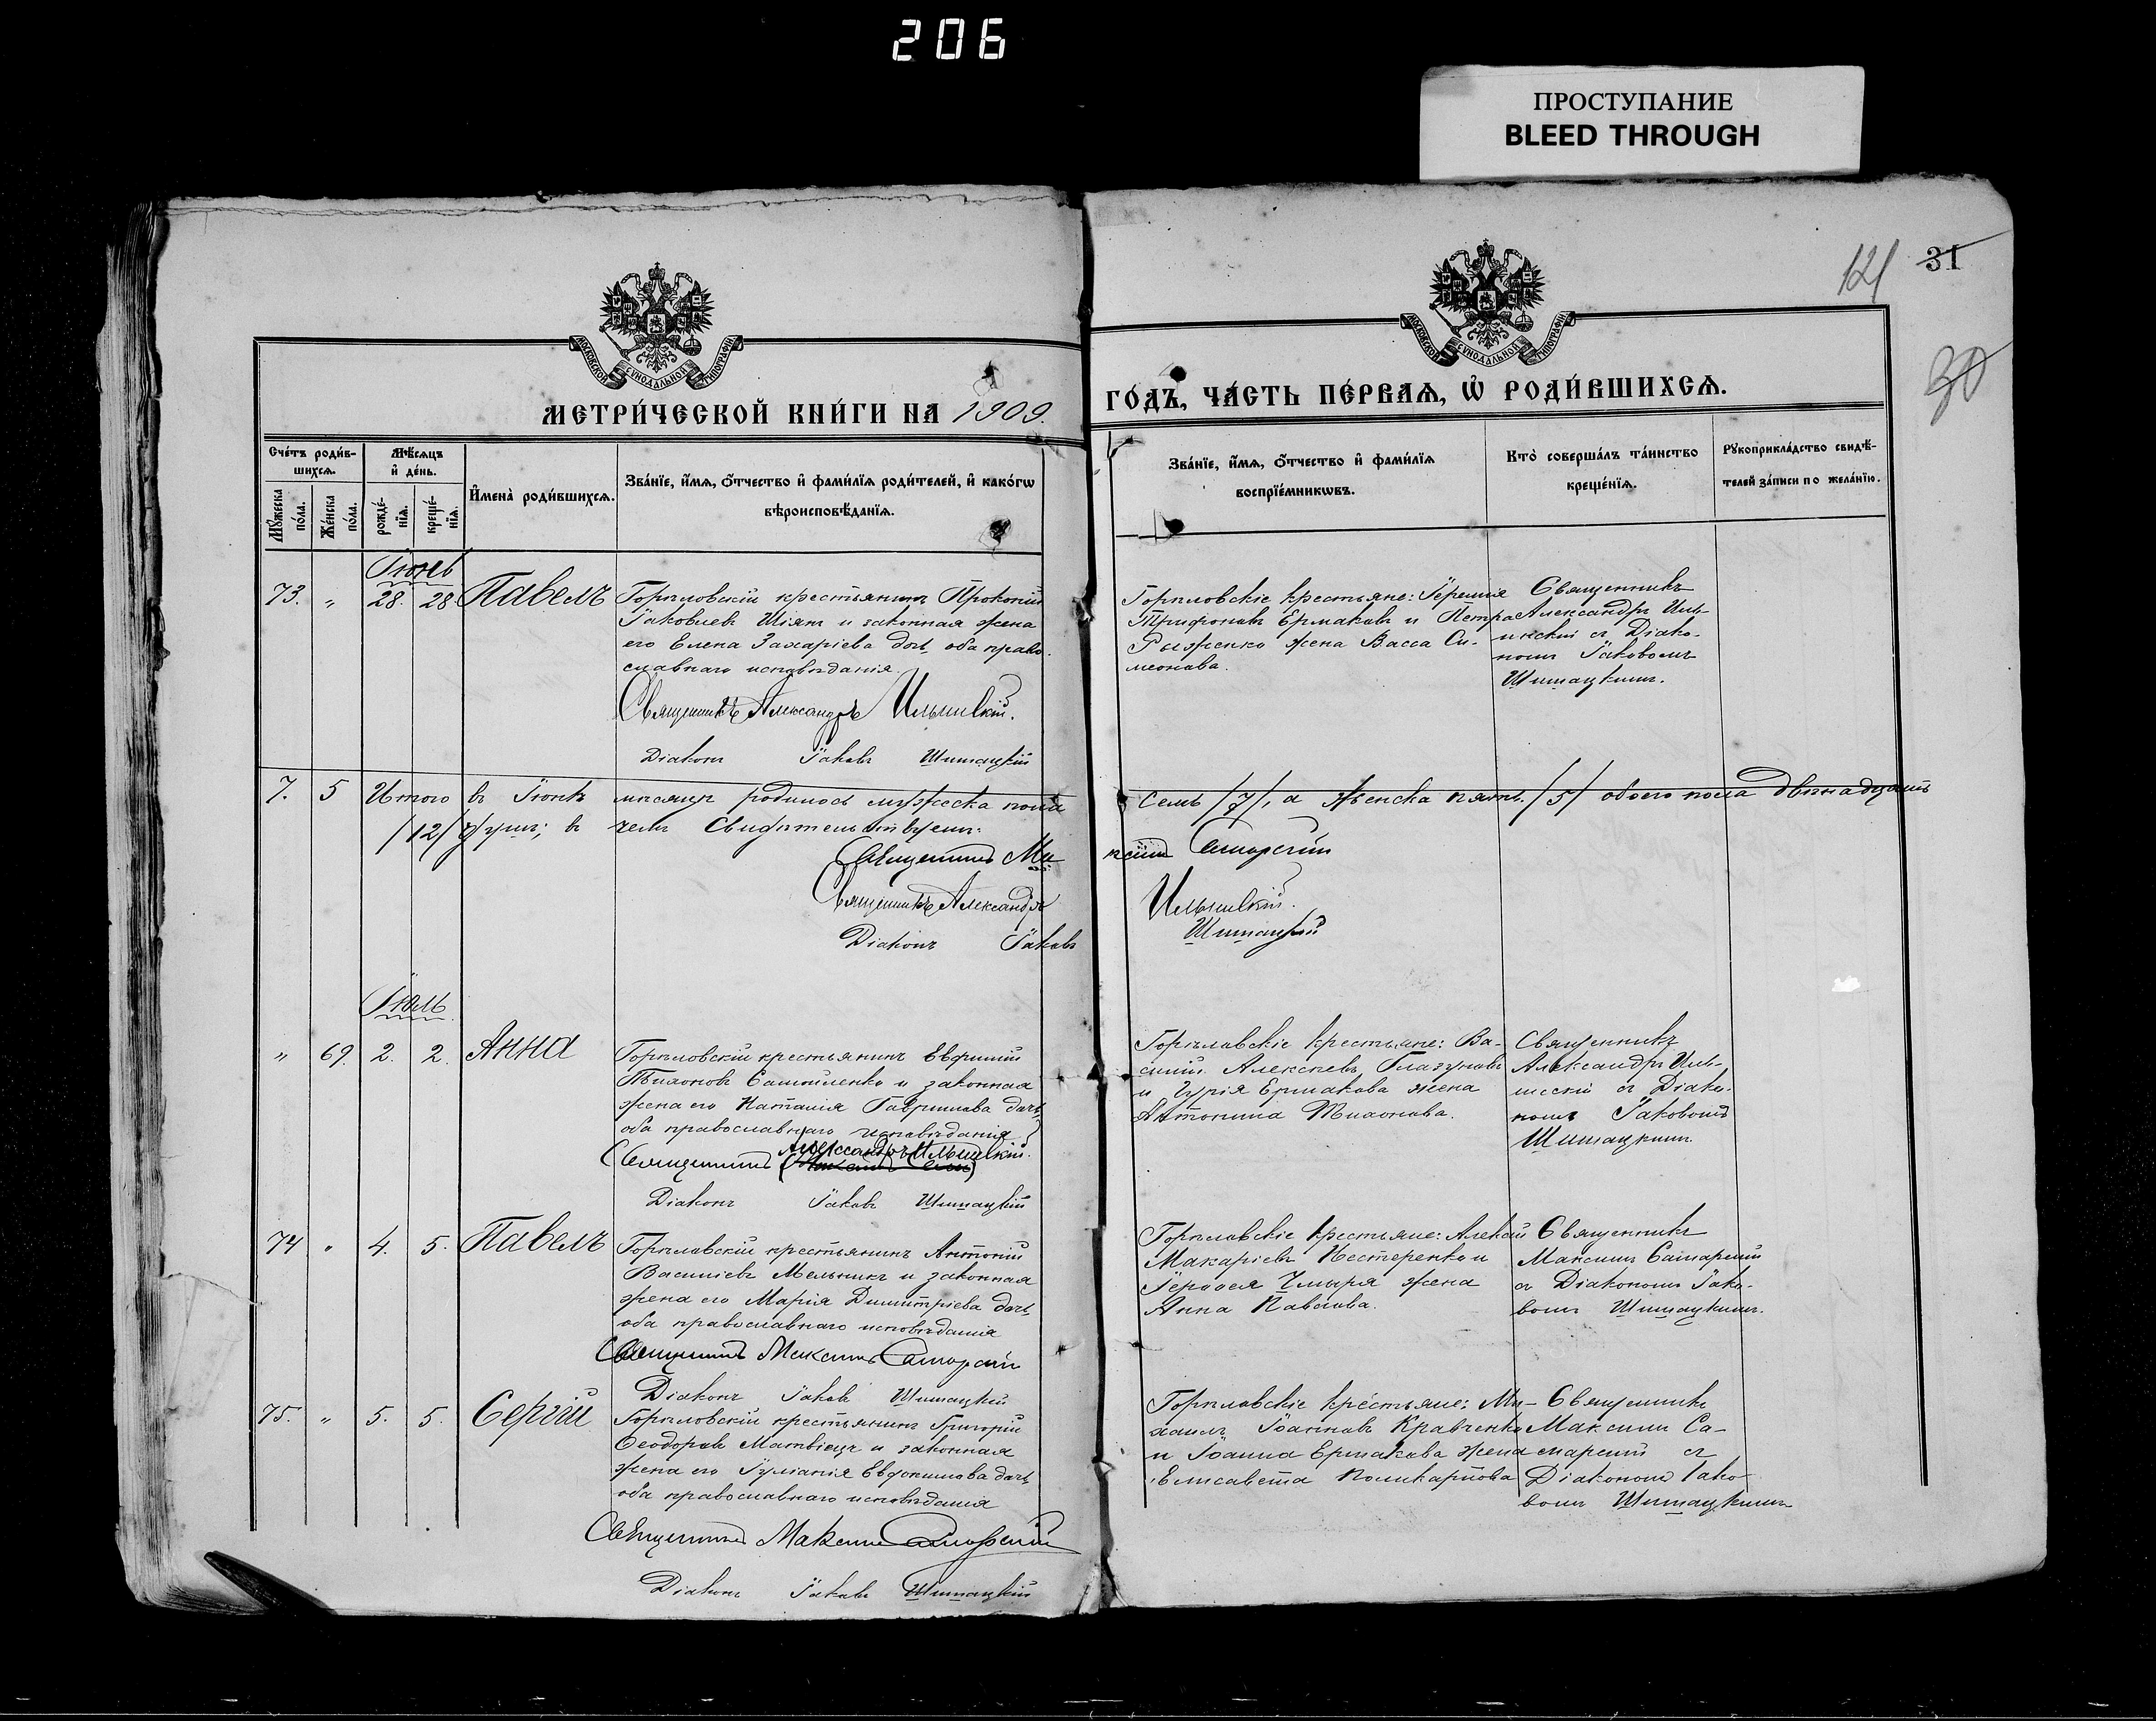 206
ПРОСТУПАНИЕ
BLEED THROUGH
121
31
30
МОСКОВСКОЙ СѴНОДАЛЬНОЙ ТИПОГРАФІИ
МОСКОВСКОЙ СѴНОДАЛЬНОЙ ТИПОГРАФІИ
МЕТРИ́ЧЕСКОЙ КНИ́ГИ НА 1909.
ГО́ДЪ, ЧА́СТЬ ПЕ́РВАѦ, Ѡ҆ РОДИ́ВШИХСѦ.
Сче́тъ роди́в-
шихсѧ.
Мꙋ́жеска
по́ла.
Же́нска
по́ла.
Мѣ́сѧцъ
и҆ де́нь.
рожде́-
нїѧ.
креще́-
нїѧ.
И҆мена̀ роди́вшихсѧ.
Зва́нїе, и҆́мѧ, ѻ҆́тчество и҆ фами́лїѧ роди́телей, и҆ како́гѡ
вѣроисповѣ́данїѧ.
Зва́нїе, и҆́мѧ, ѻ҆́тчество и҆ фами́лїѧ
воспрїе́мникѡвъ.
Кто̀ соверша́лъ та́инство
креще́нїѧ.
Рꙋкоприкла́дство свидѣ́-
телей за́писи по жела́нїю.
Іюнь
73. " 28. 28 Павелъ
Горѣловскій крестьянинъ Прокопій
Іаковлевъ Шіянъ и законная жена
его Елена Захаріева дочь, оба право-
славнаго исповѣданія.
Священникъ Александръ Ильницкій.
Діаконъ Іаковъ Шишацкій
Горѣловскіе крестьяне: Іеремія
Трифоновъ Ермаковъ и Петра
Рыженко жена Васса Си-
меонова.
Священникъ
Александръ Иль-
ницкій съ Діако-
номъ Іаковомъ
Шишацкимъ.
7. 5 Итого въ Іюнѣ мѣсяцѣ родилось мужеска пола семь /7/, а женска пять /5/ обоего пола двѣнадцать
/12/ душъ; въ чемъ Свидѣтельствуемъ:
Священникъ Мак-
симъ Самарскій
Священникъ Александръ Ильницкій.
Діаконъ Іаковъ Шишацкій
Іюль
" 69. 2. 2. Анна
Горѣловскій крестьянинъ Евфимій
Тихоновъ Самойленко и законная
жена его Наталія Гавриилова дочь,
оба православнаго исповѣданія
Александръ Ильницкій.
Священникъ
Діаконъ Іаковъ Шишацкій
Горѣловскіе крестьяне: Ва-
силій Алексѣевъ Глазуновъ
и Гурія Ермакова жена
Антонина Тихонова.
Священникъ
Александръ Иль-
ницкій съ Діако-
номъ Іаковомъ
Шишацкимъ.
74 " 4. 5. Павелъ
Горѣловскій крестьянинъ Антоній
Василіевъ Мельникъ и законная
жена его Марія Димитріева дочь,
оба православнаго исповѣданія
Священникъ Максимъ Самарскій
Діаконъ Іаковъ Шишацкій
Горѣловскіе крестьяне: Алексій
Макаріевъ Нестеренко и
Іероѳея Чмыря жена
Анна Павлова.
Священникъ
Максимъ Самарскій
съ Діакономъ Іако-
вомъ Шишацкимъ.
75. " 5. 5. Сергій
Горѣловскій крестьянинъ Григорій
Ѳеодоровъ Матвіецъ и законная
жена его Іуліанія Евдокимова дочь,
оба православнаго исповѣданія
Священникъ Максимъ Самарскій
Діаконъ Іаковъ Шишацкій
Горѣловскіе крестьяне: Ми-
хаилъ Іоанновъ Кравченко
и Іоанна Ермакова жена
Елисавета Поликарпова
Священникъ
Максимъ Са-
марскій съ
Діакономъ Іако-
вомъ Шишацкимъ